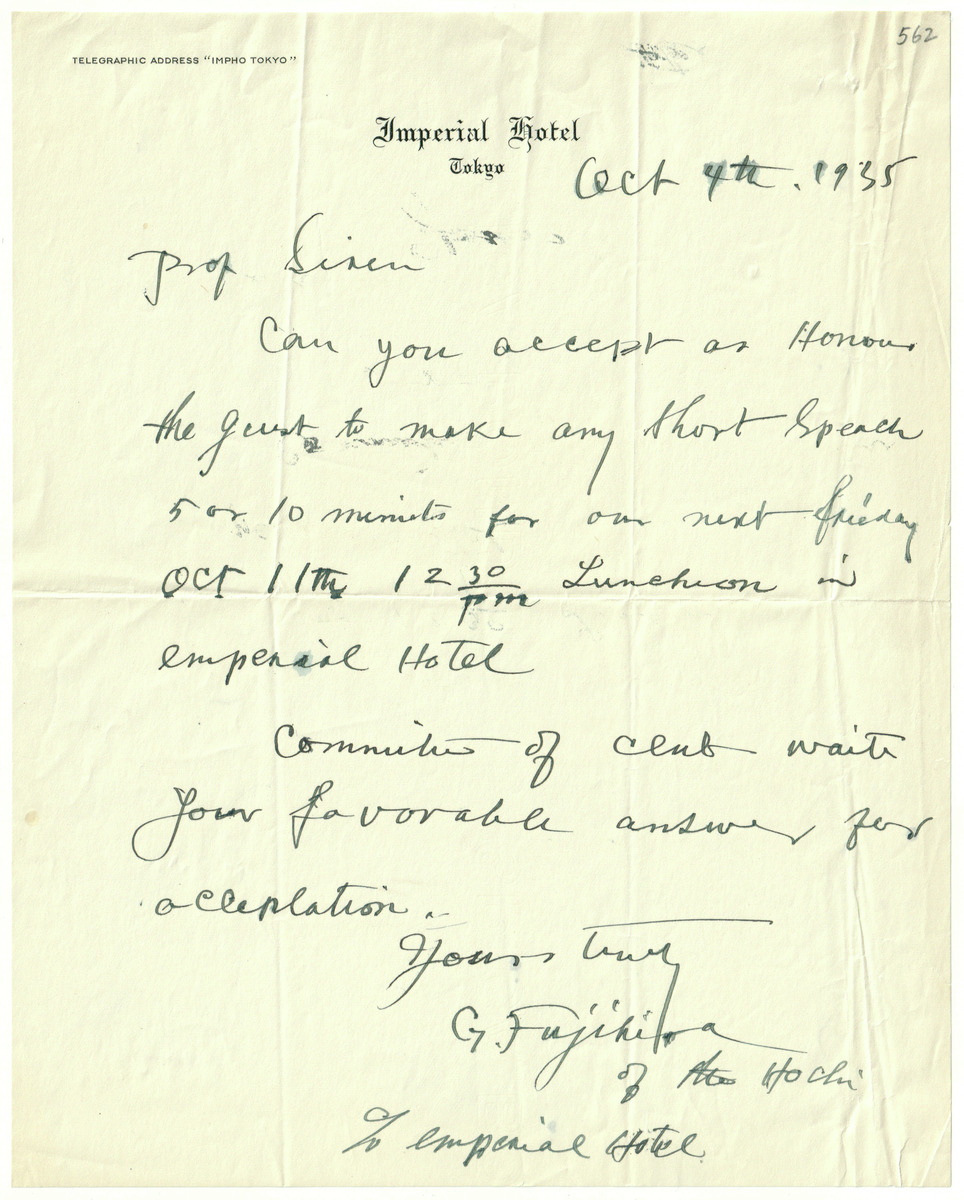 562
TELEGRAPHIC ADDRESS "IMPHO TOKYO"
Imperial Hotel
Tokyo
Oct 4th. 1935
Prof Siren
Can you accept as Honour
the guest to make any short speach
5 or 10 minits for our next frieday
Oct 11th 12 30 pm Luncheon in
emperial Hotel
Committe of club waite
your favorable answer for
acceptation.
Yours truly
G. Fujihira
of the Hochi
c/o emperial Hotel